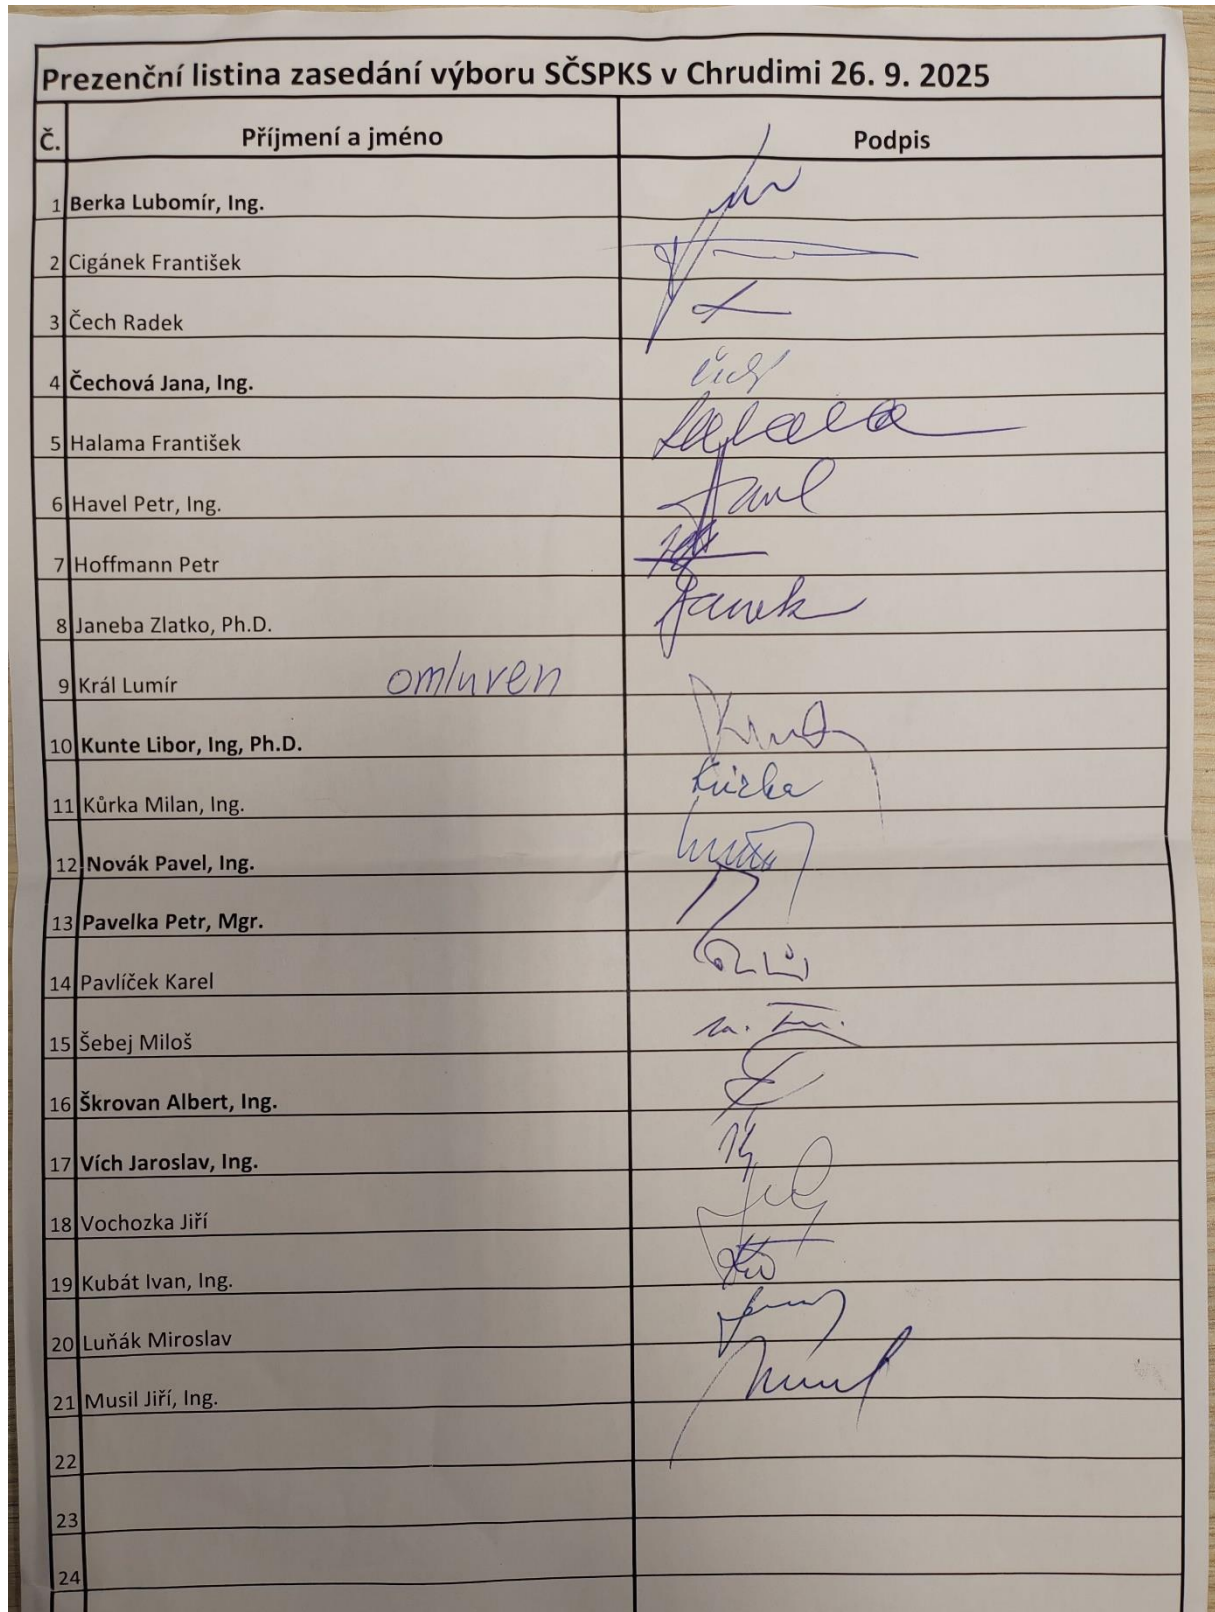 Prezenční listina zasedání výboru SČSPKS v Chrudimi 26. 9. 2025
Č. Příjmení a jméno Podpis
1 Berka Lubomír, Ing.
2 Cigánek František
3 Čech Radek
4 Čechová Jana, Ing.
5 Halama František
6 Havel Petr, Ing.
7 Hoffmann Petr
8 Janeba Zlatko, Ph.D.
9 Král Lumír omluven
10 Kunte Libor, Ing, Ph.D.
11 Kůrka Milan, Ing. Kůrka
12 Novák Pavel, Ing.
13 Pavelka Petr, Mgr.
14 Pavlíček Karel
15 Šebej Miloš
16 Škrovan Albert, Ing.
17 Vích Jaroslav, Ing.
18 Vochozka Jiří
19 Kubát Ivan, Ing.
20 Luňák Miroslav
21 Musil Jiří, Ing.
22
23
24